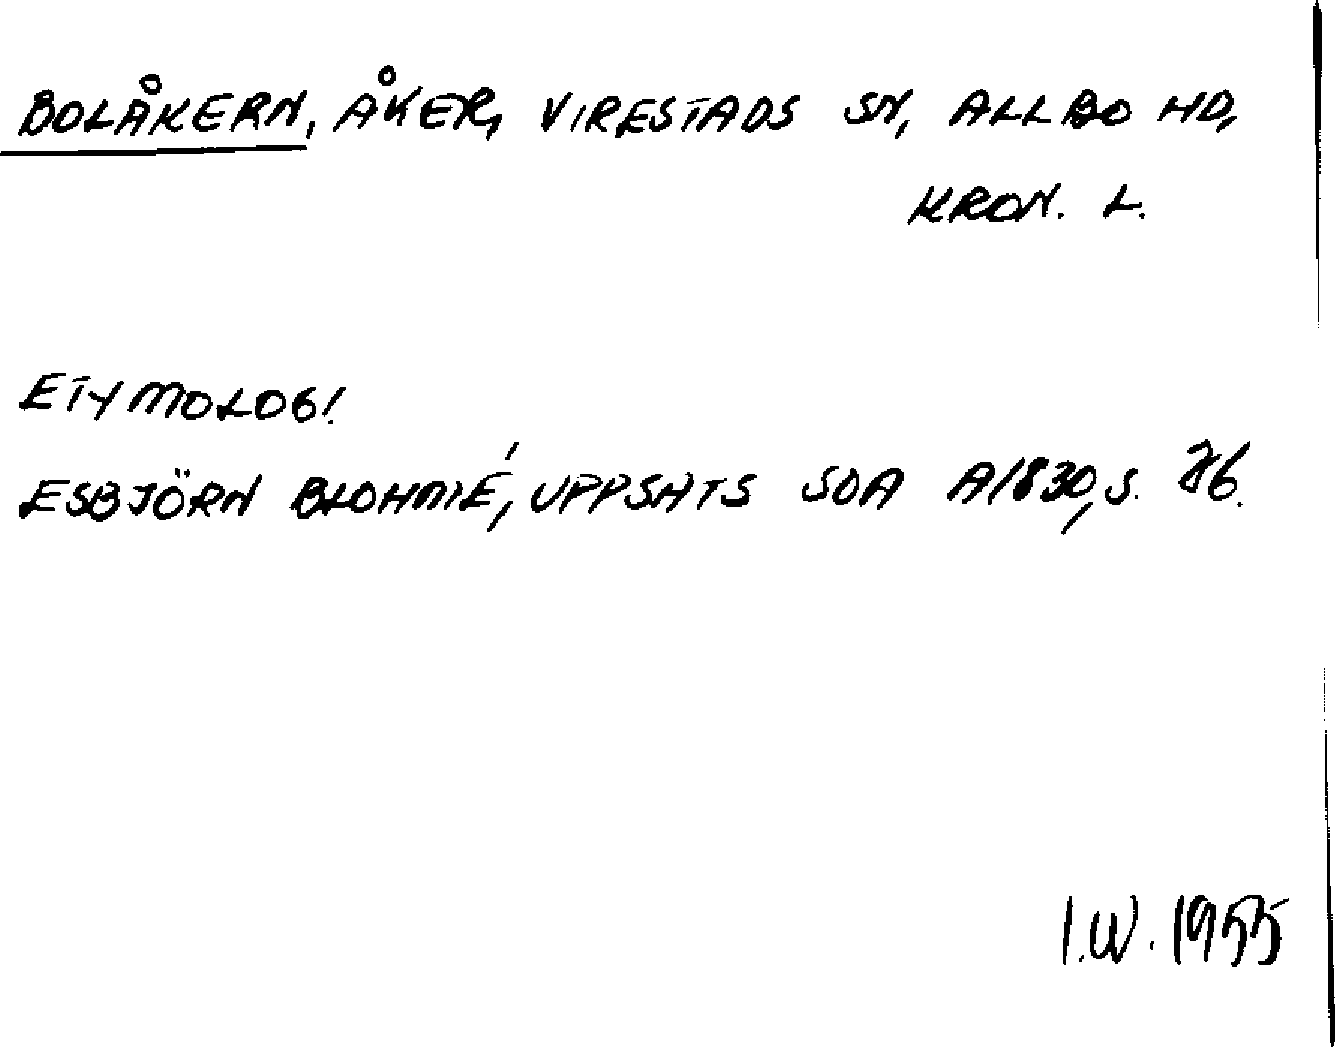 BOLÅKERN, ÅKER, VIRESTADS SN, ALLBO HD,
KRON. L.
ETYMOLOGI.
ESBJÖRN BLOHMÉ, UPPSATS SOA A1830, S. 76.
I.W. 1955